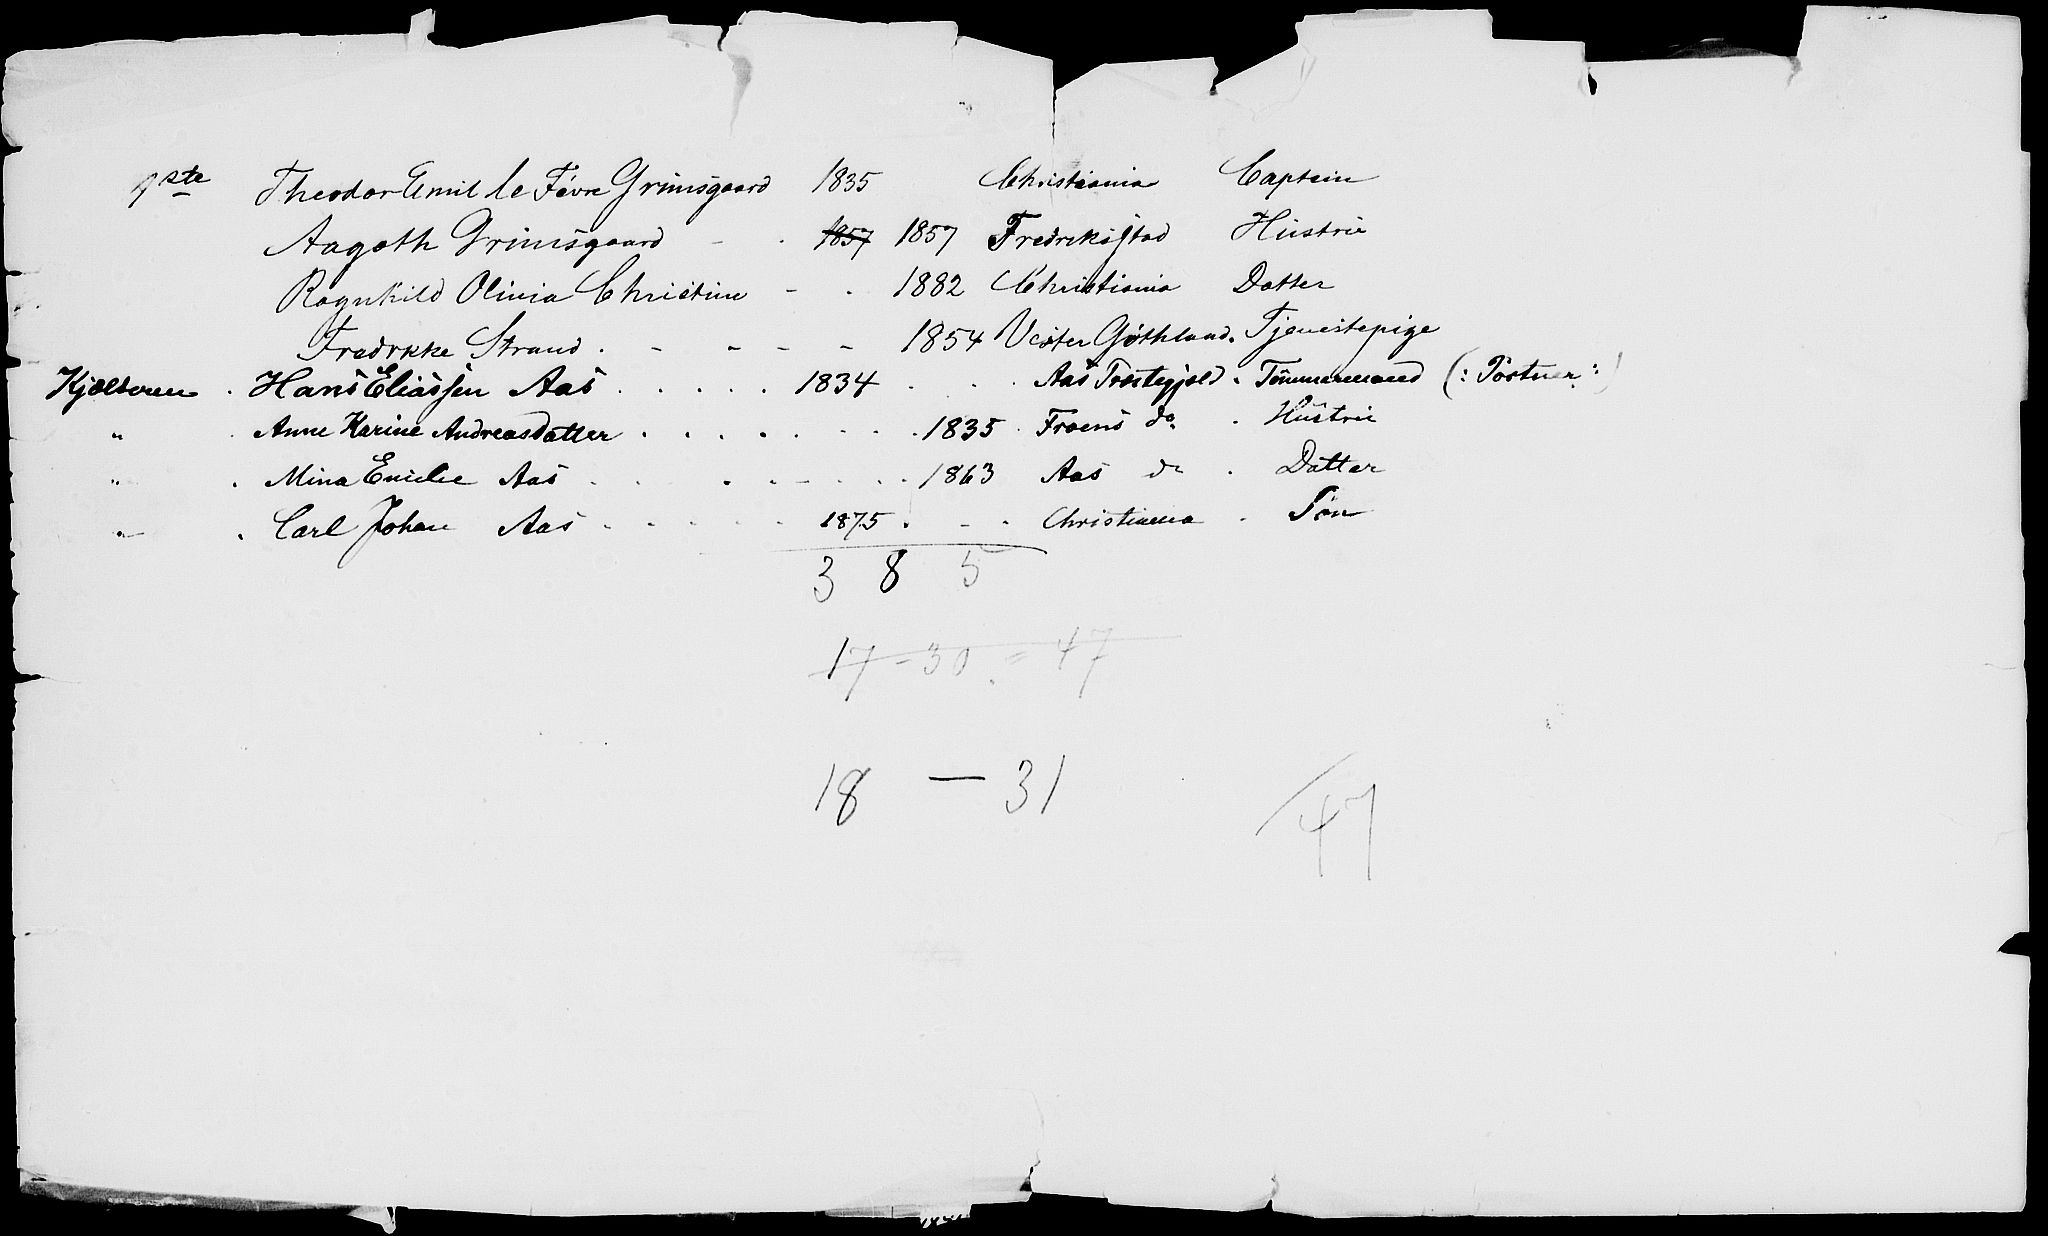 1ste Theodor Emil le Févre Grimsgaard 1835 Christiania Captein
Aagoth Grimsgaard - . 1857 1857 Fredrikstad Hustrü
Ragnhild Olivia Christine - . 1882 Christiania Datter
Fredrikke Strand . - - - - 1854 Vester Göthland. Tjenestepige
Kjelderen . Hans Eliassen Aas . . . . . 1834 . . . Aas Præstegjeld . Tömmermand (: Portner :)
" . Anne Karine Andreasdatter . . . . . . . . 1835 . Froens do . Hüstrü
" . Mina Emilie Aas . . . . - . . . 1863 Aas do . Datter
" . Carl Johan Aas . . . . . 1875 . - . Christiania . Sön
3 8 5
17 - 30 = 47
18 — 31
47